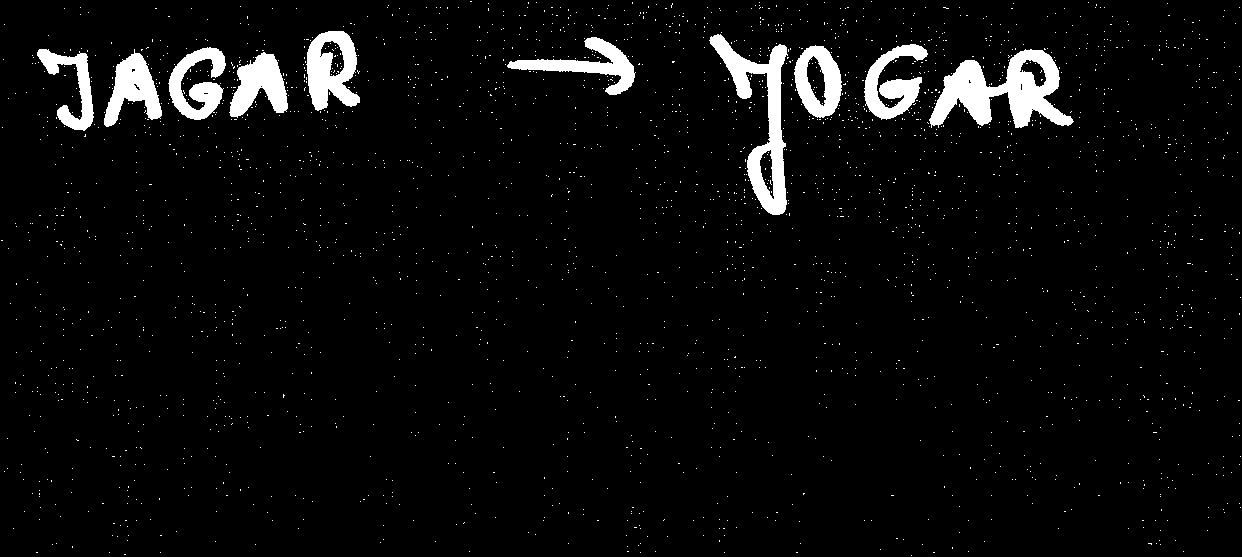 JAGAR → YOGAR